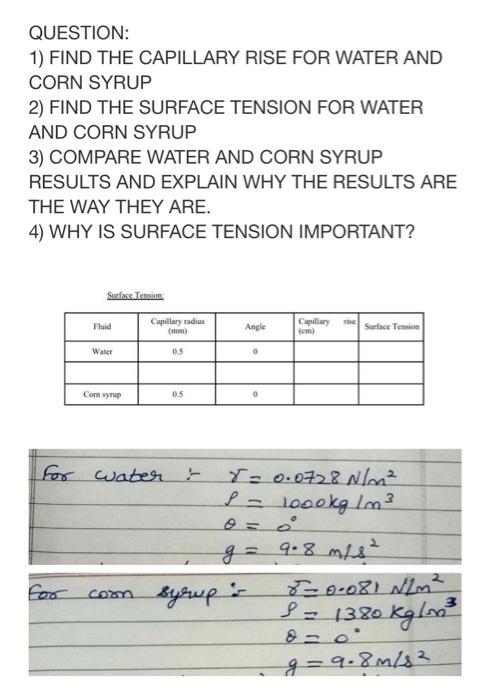 QUESTION:
1) FIND THE CAPILLARY RISE FOR WATER AND
CORN SYRUP
2) FIND THE SURFACE TENSION FOR WATER
AND CORN SYRUP
3) COMPARE WATER AND CORN SYRUP
RESULTS AND EXPLAIN WHY THE RESULTS ARE
THE WAY THEY ARE.
4) WHY IS SURFACE TENSION IMPORTANT?
Surface Tension:
Fluid Capillary radius (mm) Angle Capillary rise (cm) Surface Tension
Water 0.5 0
Corn syrup 0.5 0
For water :- γ = 0.0728 N/m²
ρ = 1000kg/m³
θ = 0°
g = 9.8 m/s²
For corn syrup :- γ = 0.081 N/m²
ρ = 1380 Kg/m³
θ = 0°
g = 9.8 m/s²